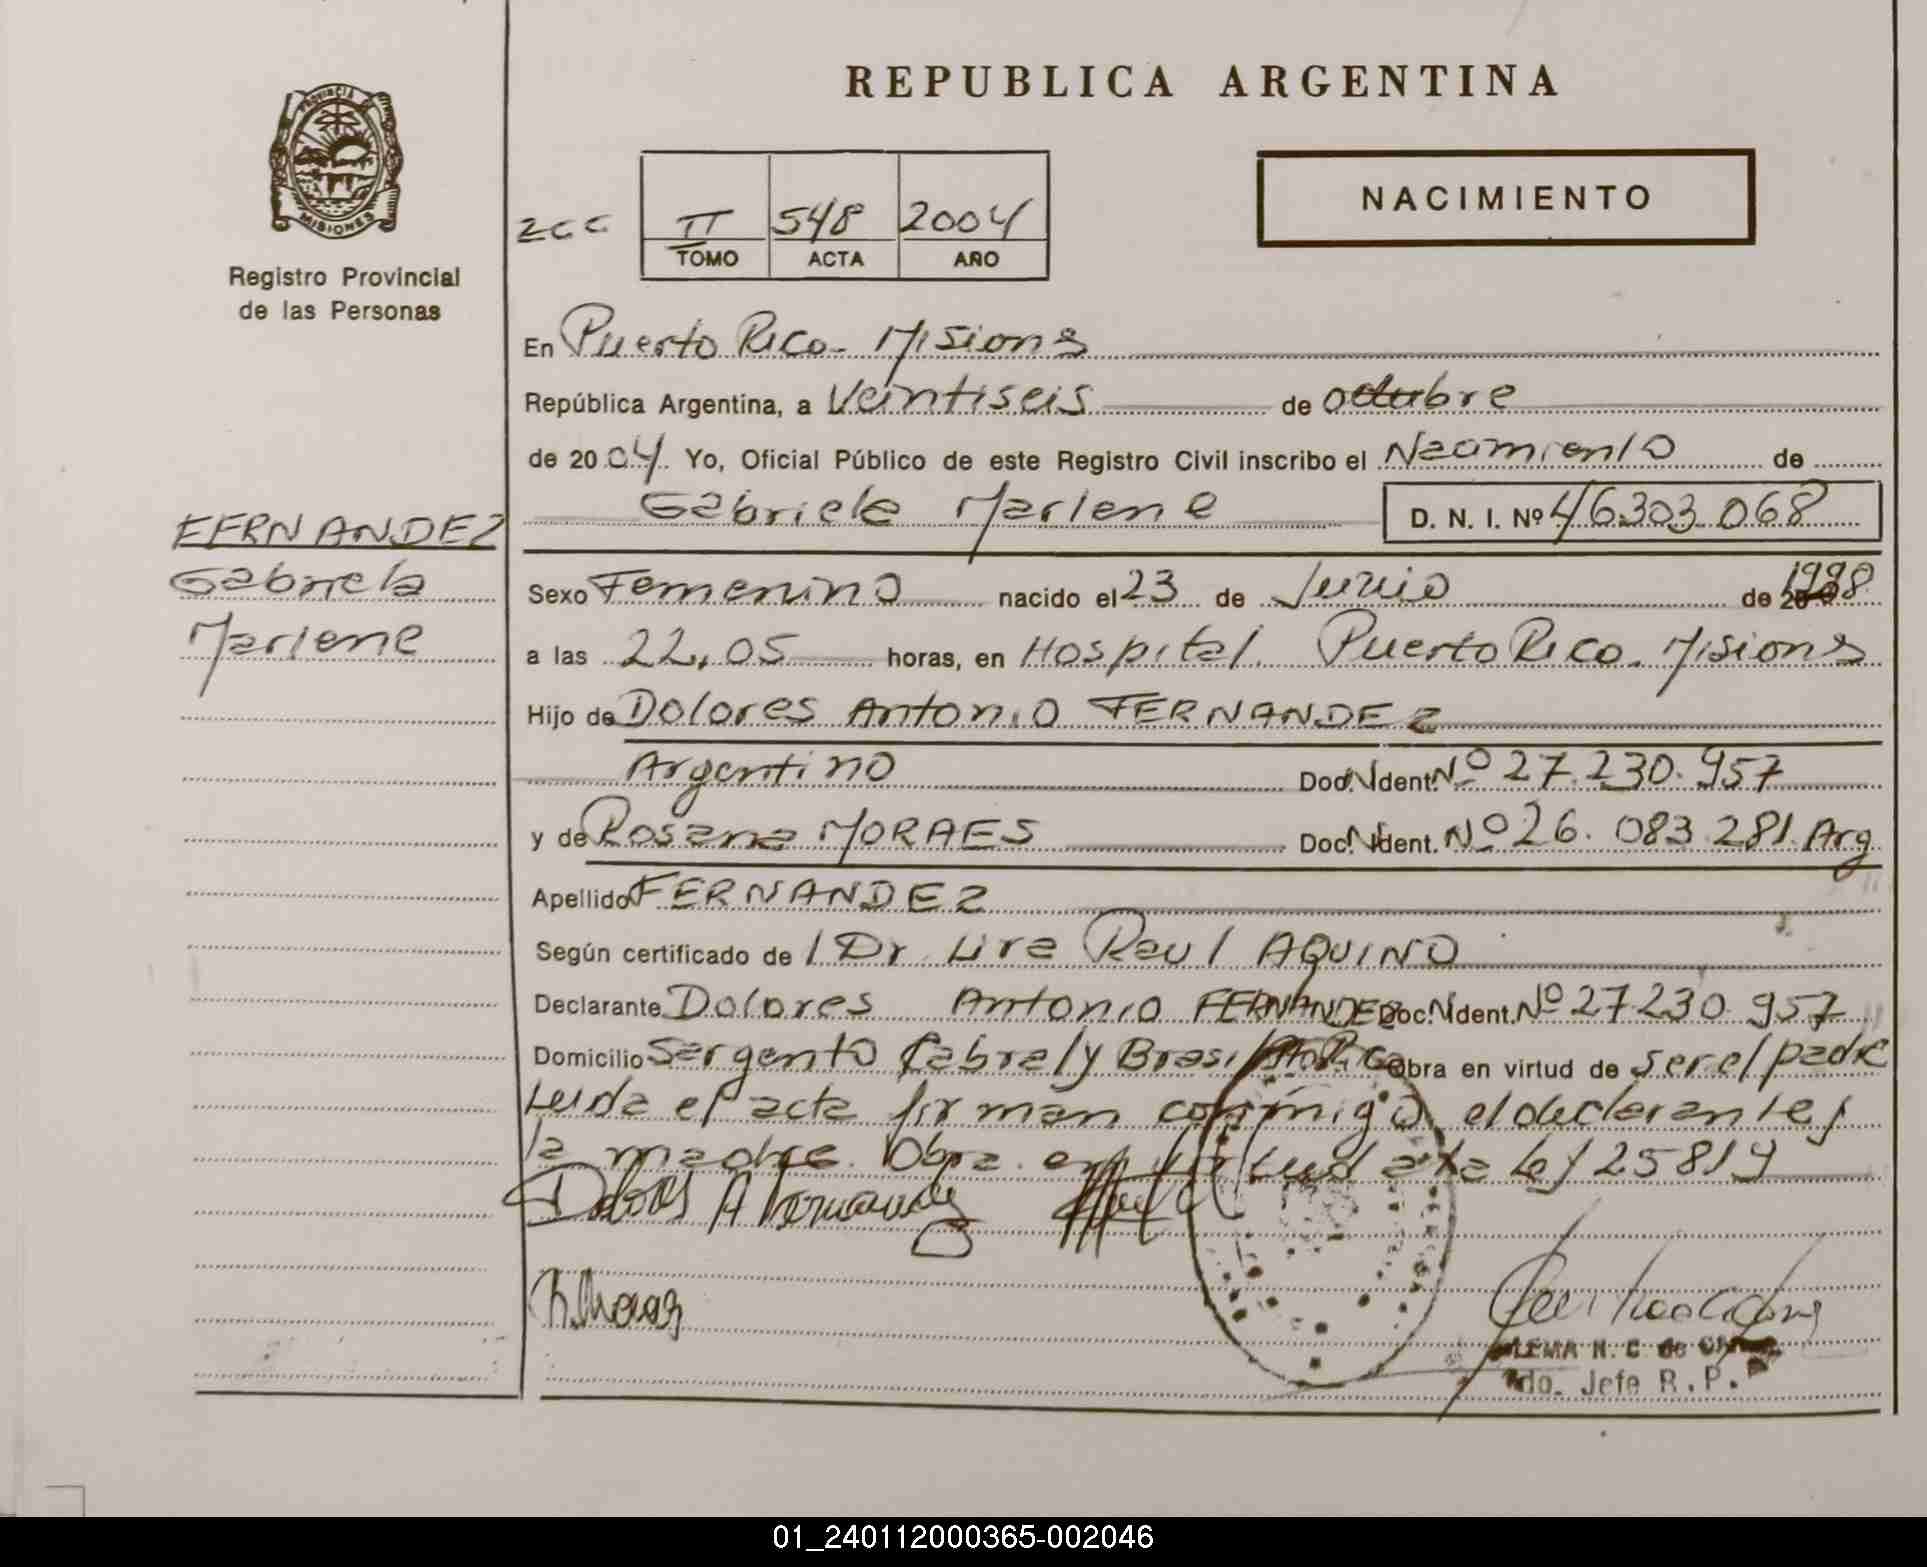 REPUBLICA ARGENTINA
PROVINCIA DE
MISIONES
Registro Provincial
de las Personas
NACIMIENTO
II 548 2004
TOMO ACTA AÑO
En Puerto Rico - Misiones
República Argentina, a Veintiseis de octubre
de 2004 Yo, Oficial Público de este Registro Civil inscribo el Nacimiento de
Gabriela Marlene D. N. I. Nº 46.303.068
FERNANDEZ
Gabriela
Marlene
Sexo Femenino nacido el 23 de Junio de 1998
a las 22,05 horas, en Hospital. Puerto Rico. Misiones
Hijo de Dolores Antonio FERNANDEZ
Argentino Doc. Ident. Nº 27.230.957
y de Rosana MORAES Doc. Ident. Nº 26.083.281. Arg
Apellido FERNANDEZ
Según certificado de l Dr. Lira Raul AQUINO
Declarante Dolores Antonio FERNANDEZ Doc. Ident. Nº 27.230.957
Domicilio Sargento Cabral y Brasil Pto Rico Obra en virtud de ser el padre
Leida el acta firman conmigo el declarante y
la madre. Obra en virtud a la ley 25819
Dolores A Fernandez
R. Moraes
N. C. de
do. Jefe R. P.
01_240112000365-002046